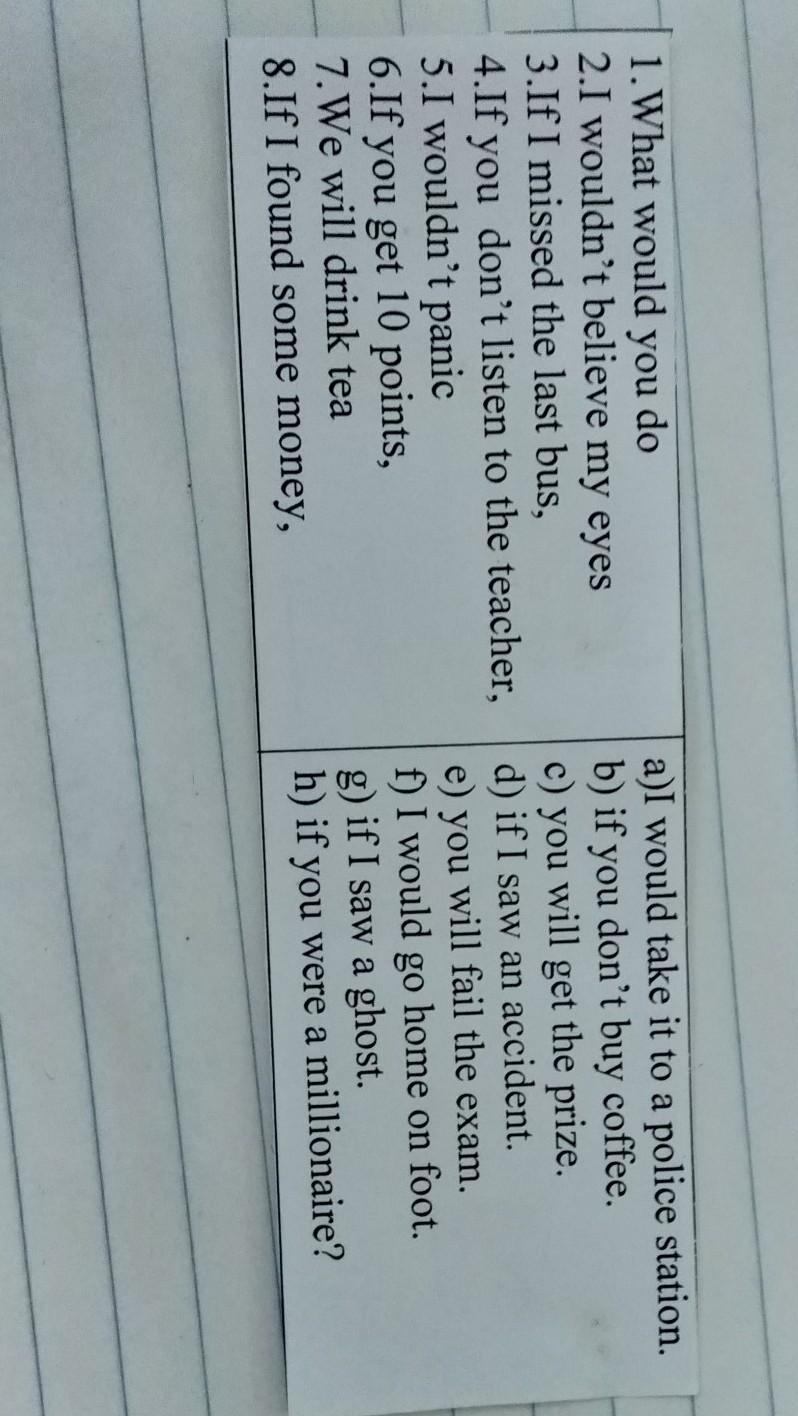 1.What would you do
2.I wouldn't believe my eyes
3.If I missed the last bus,
4.If you don't listen to the teacher,
5.I wouldn't panic
6.If you get 10 points,
7.We will drink tea
8.If I found some money,
a)I would take it to a police station.
b) if you don't buy coffee.
c) you will get the prize.
d) if I saw an accident.
e) you will fail the exam.
f) I would go home on foot.
g) if I saw a ghost.
h) if you were a millionaire?